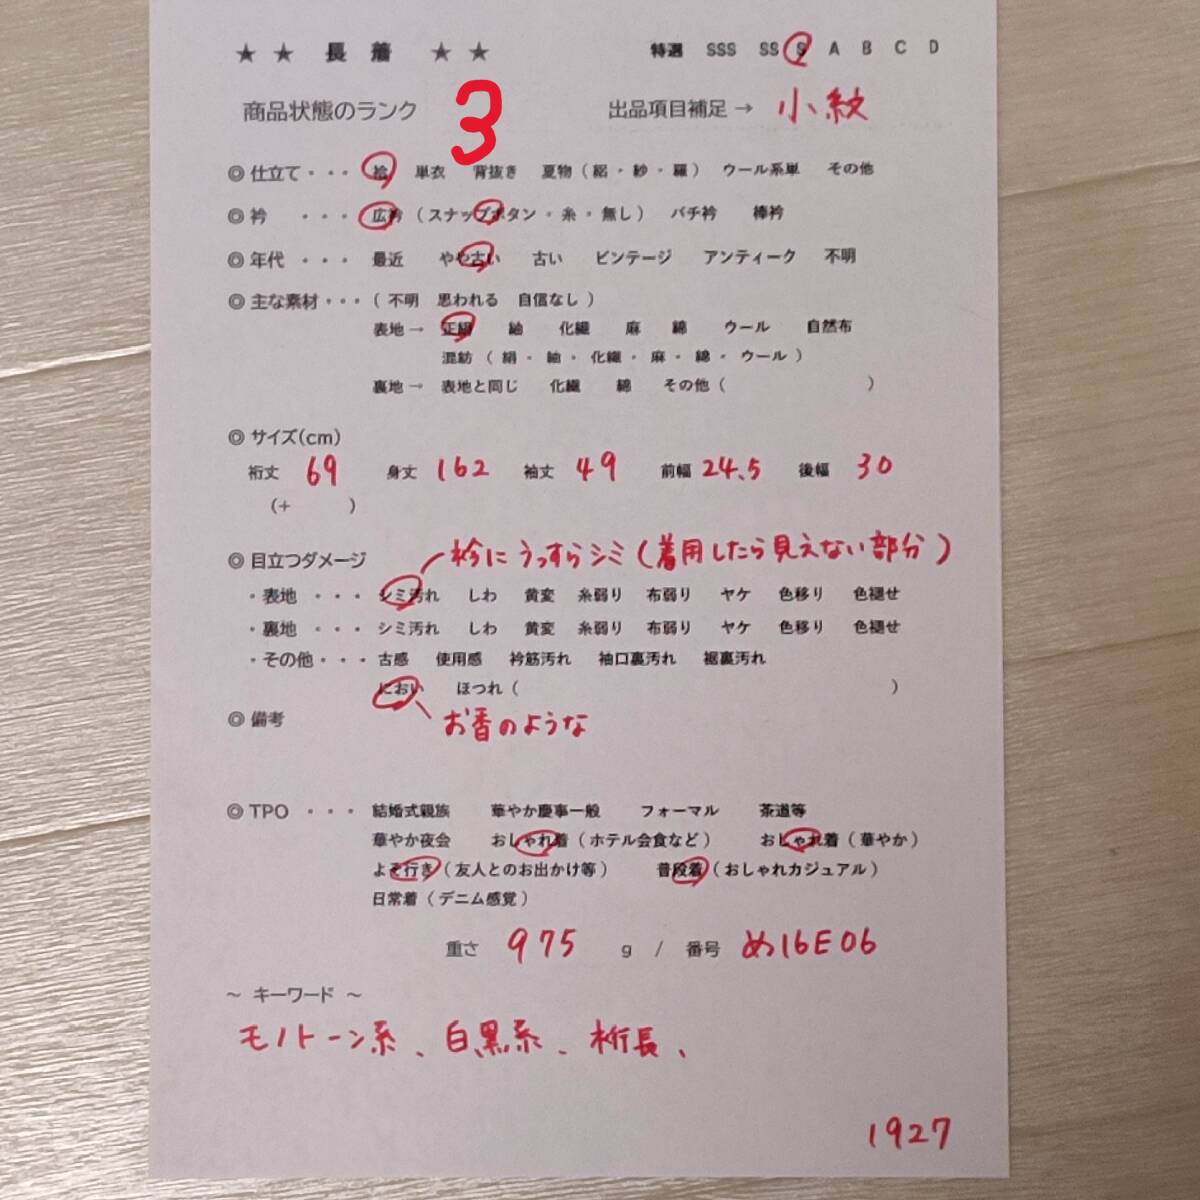 ★ ★ 長着 ★ ★ 特選 SSS SS S A B C D
商品状態のランク 3 出品項目補足 → 小紋
◎ 仕立て・・・ 袷 単衣 背抜き 夏物（絽・紗・羅） ウール系単 その他
◎ 衿 ・・・ 広衿（スナップボタン・糸・無し） バチ衿 棒衿
◎ 年代 ・・・ 最近 やや古い 古い ビンテージ アンティーク 不明
◎ 主な素材・・・（ 不明 思われる 自信なし ）
表地 → 正絹 紬 化繊 麻 綿 ウール 自然布
混紡（ 絹・紬・化繊・麻・綿・ウール ）
裏地 → 表地と同じ 化繊 綿 その他（ ）
◎ サイズ(cm)
裄丈 69 身丈 162 袖丈 49 前幅 24.5 後幅 30
(+ )
◎ 目立つダメージ 衿にうっすらシミ(着用したら見えない部分)
・表地 ・・・ シミ汚れ しわ 黄変 糸弱り 布弱り ヤケ 色移り 色褪せ
・裏地 ・・・ シミ汚れ しわ 黄変 糸弱り 布弱り ヤケ 色移り 色褪せ
・その他・・・ 古感 使用感 衿筋汚れ 袖口裏汚れ 裾裏汚れ
におい ほつれ（ ）
◎ 備考 お香のような
◎ TPO ・・・ 結婚式親族 華やか慶事一般 フォーマル 茶道等
華やか夜会 おしゃれ着（ホテル会食など） おしゃれ着（華やか）
よそ行き（友人とのお出かけ等） 普段着（おしゃれカジュアル）
日常着（デニム感覚）
重さ 975 g / 番号 め16E06
～ キーワード ～
モノトーン系、白黒系、裄長、
1927